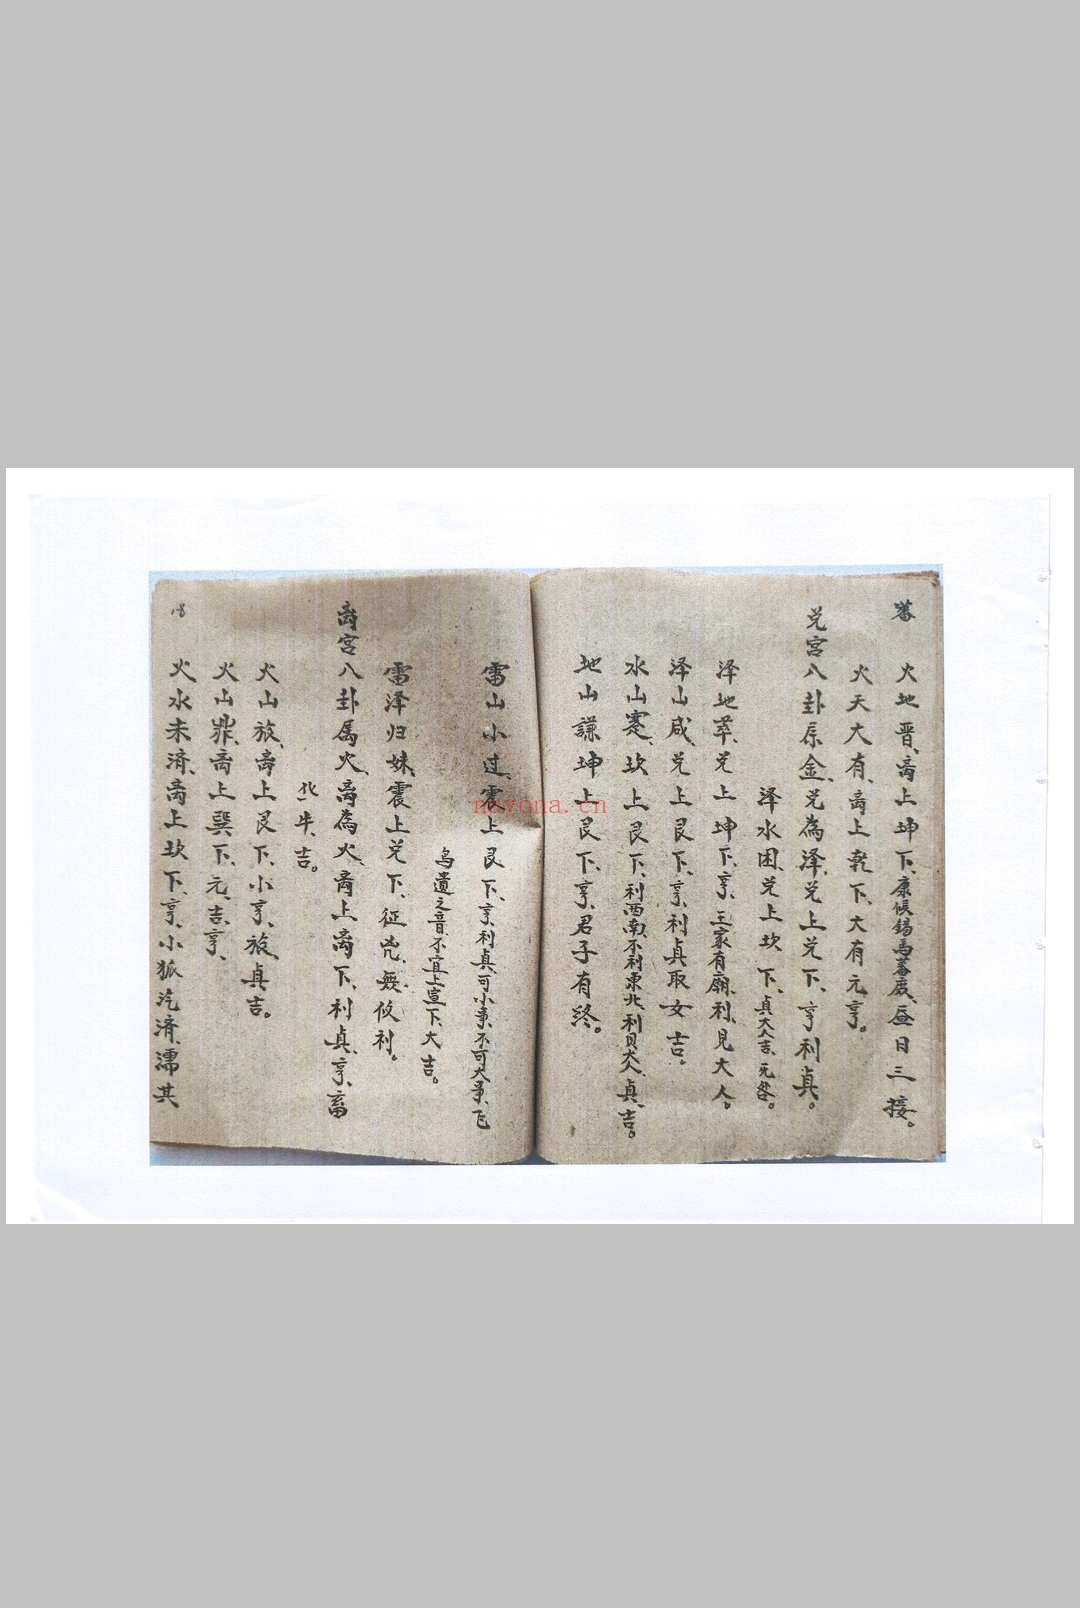 蕃
火地晋、离上坤下、康候錫馬蕃庶、昼日三接。
火天大有、离上乾下、大有元亨。
兑宫八卦属金、兑為泽、兑上兑下、亨利貞。
泽水困、兑上坎下、貞大人吉、无咎。
泽地萃、兑上坤下、亨、王家有廟、利見大人。
泽山咸、兑上艮下、亨、利貞取女吉。
水山蹇、坎上艮下、利西南不利東北、利见大人、貞、吉。
地山謙坤上艮下、亨、君子有终。
雷山小过、震上艮下、亨、利貞、可小事、不可大事、飞
鸟遗之音不宜上宜下、大吉。
雷泽归妹、震上兑下、征凶、無攸利。
离宫八卦属火、离為火、离上离下、利貞、亨、畜
牝牛、吉。
火山旅、离上艮下、小亨、旅、貞吉。
火山鼎、离上巽下、元、吉、亨、
火水未済、离上坎下、亨、小狐汔済、濡其
navona.cn